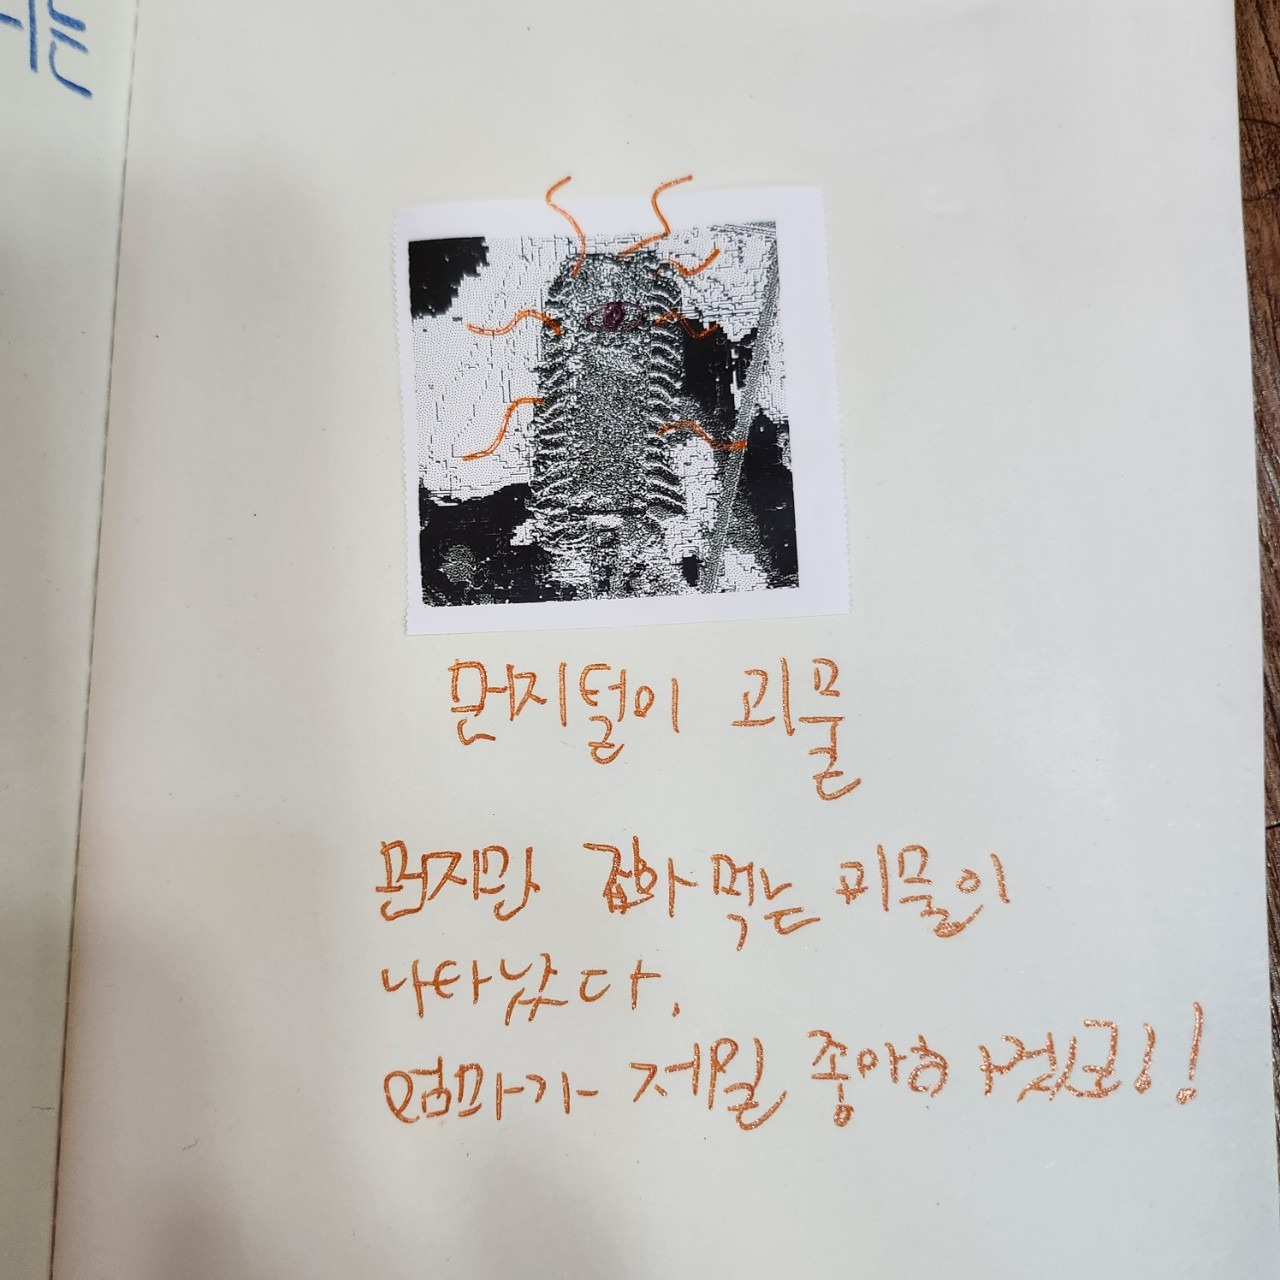 먼지털이 괴물
먼지만 잡아 먹는 괴물이
나타났다.
엄마가 제일 좋아하겠군!